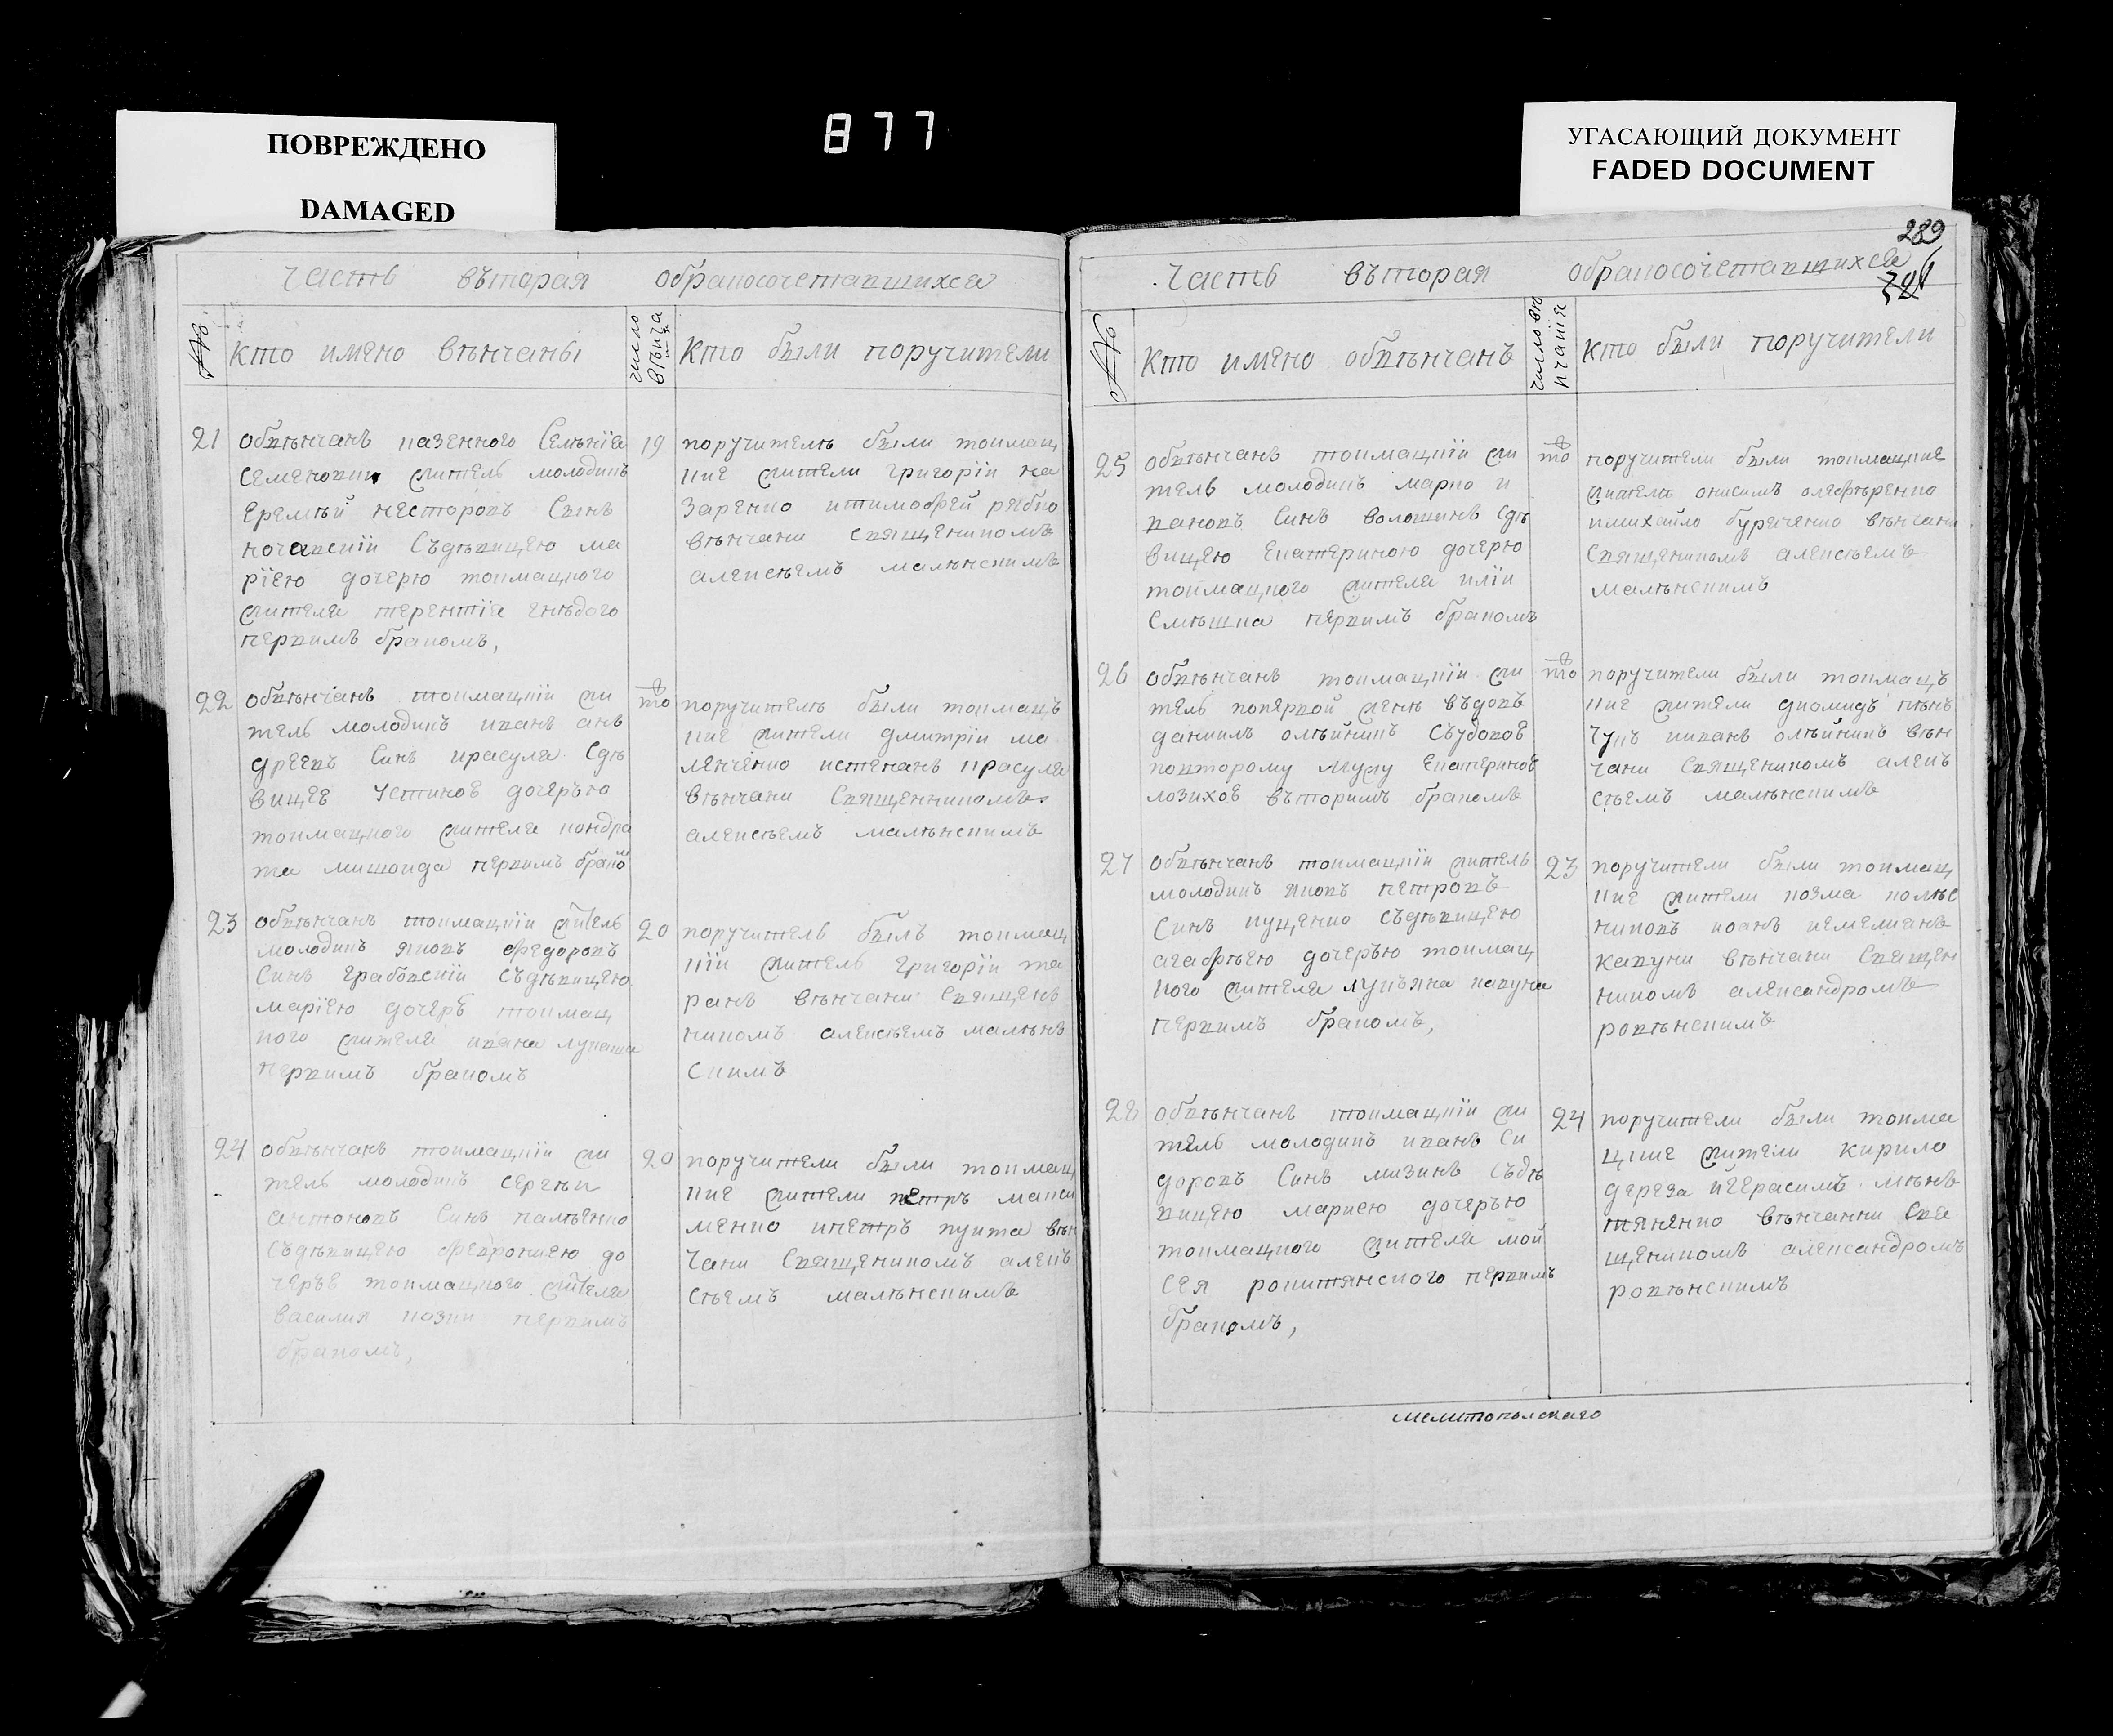 ПОВРЕЖДЕНО
DAMAGED
877
УГАСАЮЩИЙ ДОКУМЕНТ
FADED DOCUMENT
часть въторая обракосочетавшихся
№
кто имено венчаны
число венча
кто были поручители
21
обвенчанъ казенного Селения
Семеновки житель молодикъ
Еремей несторовъ Синъ
Съдевицею ма
риею дочерю токмацкого
жителя терентия гнедого
первимъ бракомъ,
19
поручителе были токмац
кие жители григории на
заренко итимофей рябко
венчани священикомъ
алексеемъ
22
обвенчанъ токмацкии жи
тель молодикъ иванъ анъ
дреевъ Синъ красуля Сде
вицев устинов дочеръю
токмацкого жителя кондра
та первимъ брако
то
поручителе были токмацъ
кие жители дмитрии ма
ленченко истепанъ красуля
венчани священникомъ
алексеемъ
23
обвенчанъ токмацкии житель
молодикъ яковъ федоровъ
Синъ грабовскии Съдевицею
мариею дочеръ токмац
кого жителя ивана лупаша
первимъ бракомъ
20
поручитель былъ токмац
кии житель григории та
ранъ венчани священъ
никомъ алексеемъ
скимъ
24
обвенчанъ токмацкии жи
тель молодикъ сергеи
антоновъ Синъ
Съдевицею феврониею до
черъе токмацкого жителя
василия козки первимъ
бракомъ,
20
поручители были токмац
кие жители петръ макси
менко ипетръ пукта вен
чани священикомъ алекъ
сеемъ
289
часть въторая обракосочетавшихся
№
кто имено обвенчанъ
число ве
нчания
кто были поручители
25
обвенчанъ токмацкии жи
тель молодикъ марко и
вановъ Синъ волошинъ Сде
вицею екатериною дочерю
токмацкого жителя илии
Смешка первимъ бракомъ
то
поручители были токмацкие
жители онисимъ олеференко
имихайло буряченко венчани
священикомъ алексеемъ
26
обвенчанъ токмацкии жи
тель поперкой жене въдовъ
даниилъ олейникъ Съудовов
повторому мужу екатеринов
лозихов въторимъ бракомъ
то
поручители были токмацъ
кие жители диомидъ
иванъ олейникъ вен
чани священикомъ алекъ
сеемъ
27
обвенчанъ токмацкии житель
молодикъ яковъ петровъ
Синъ куценко Съдевицею
агафиею дочеръю токмац
кого жителя лукъяна кавуна
первимъ бракомъ,
23
поручители были токмац
кие жители козма колес
никовъ иоанъ иемелианъ
кавуни венчани священ
никомъ александромъ
ровенскимъ
28
обвенчанъ токмацкии жи
тель молодикъ иванъ Си
доровъ Синъ мизинъ Съде
вицею мариею дочеръю
токмацкого жителя мой
сея рокитянского первимъ
бракомъ,
24
поручители были токма
цкие жители кирило
дереза игерасимъ
венчанни свя
щеникомъ александромъ
ровенскимъ
мелитопольскаго